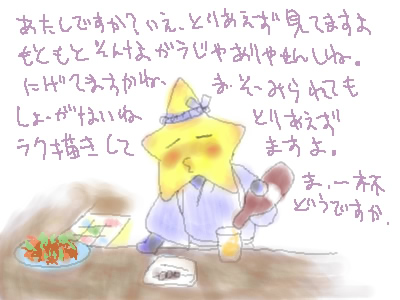 あたしですか?いえ、とりあえず見てますよ
もともとそんなガラじゃありゃせんしね。
にげてますがね、ま、そーみられても
しょーがないね とりあえず
ラク描きして ますよ。
ま、一杯
どうですか、